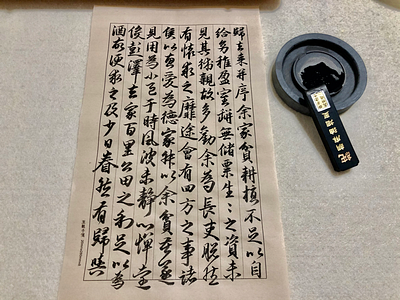 歸去來并序余家貧耕植不足以自
給幼稚盈室缾無儲粟生〻之資未
見其術親故多勸余為長吏脫然
有懷求之靡途會有四方之事諸
侯以惠愛為德家叔以余貧苦遂
見用為小邑于時風波未靜心憚遠
役彭澤去家百里公田之利足以為
酒故便求之及少日眷然有歸歟